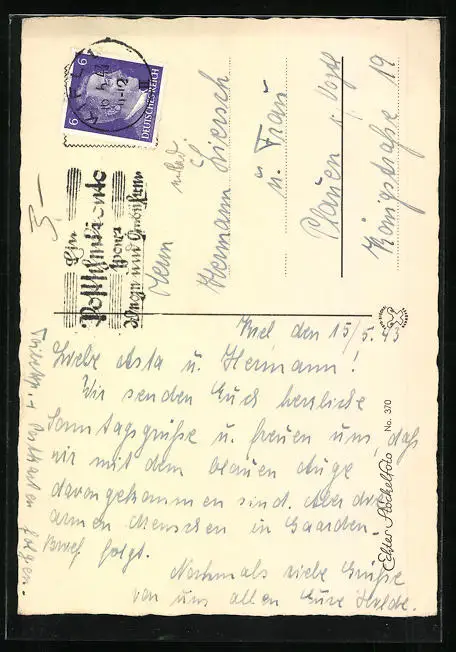 Kiel den 15/5. 43
Liebe Asta u. Hermann!
Wir senden Euch herzliche
Sonntagsgrüße u. freuen uns, daß
wir mit dem blauen Auge
davongekommen sind. Aber die
armen Menschen in Gaarden.
Brief folgt.
Nochmals viele Grüße
von uns allen Eure Hulda.
Postkarten folgen.
Herrn
Hermann Liersch
u. Frau
Plauen i. Vogtl
Königstraße 19
3,-
6 6
DEUTSCHES REICH
KIEL
11-12
Ein
Postscheckkonto
spart
Wege und Gebühren
Echter Stöckelfoto No. 370